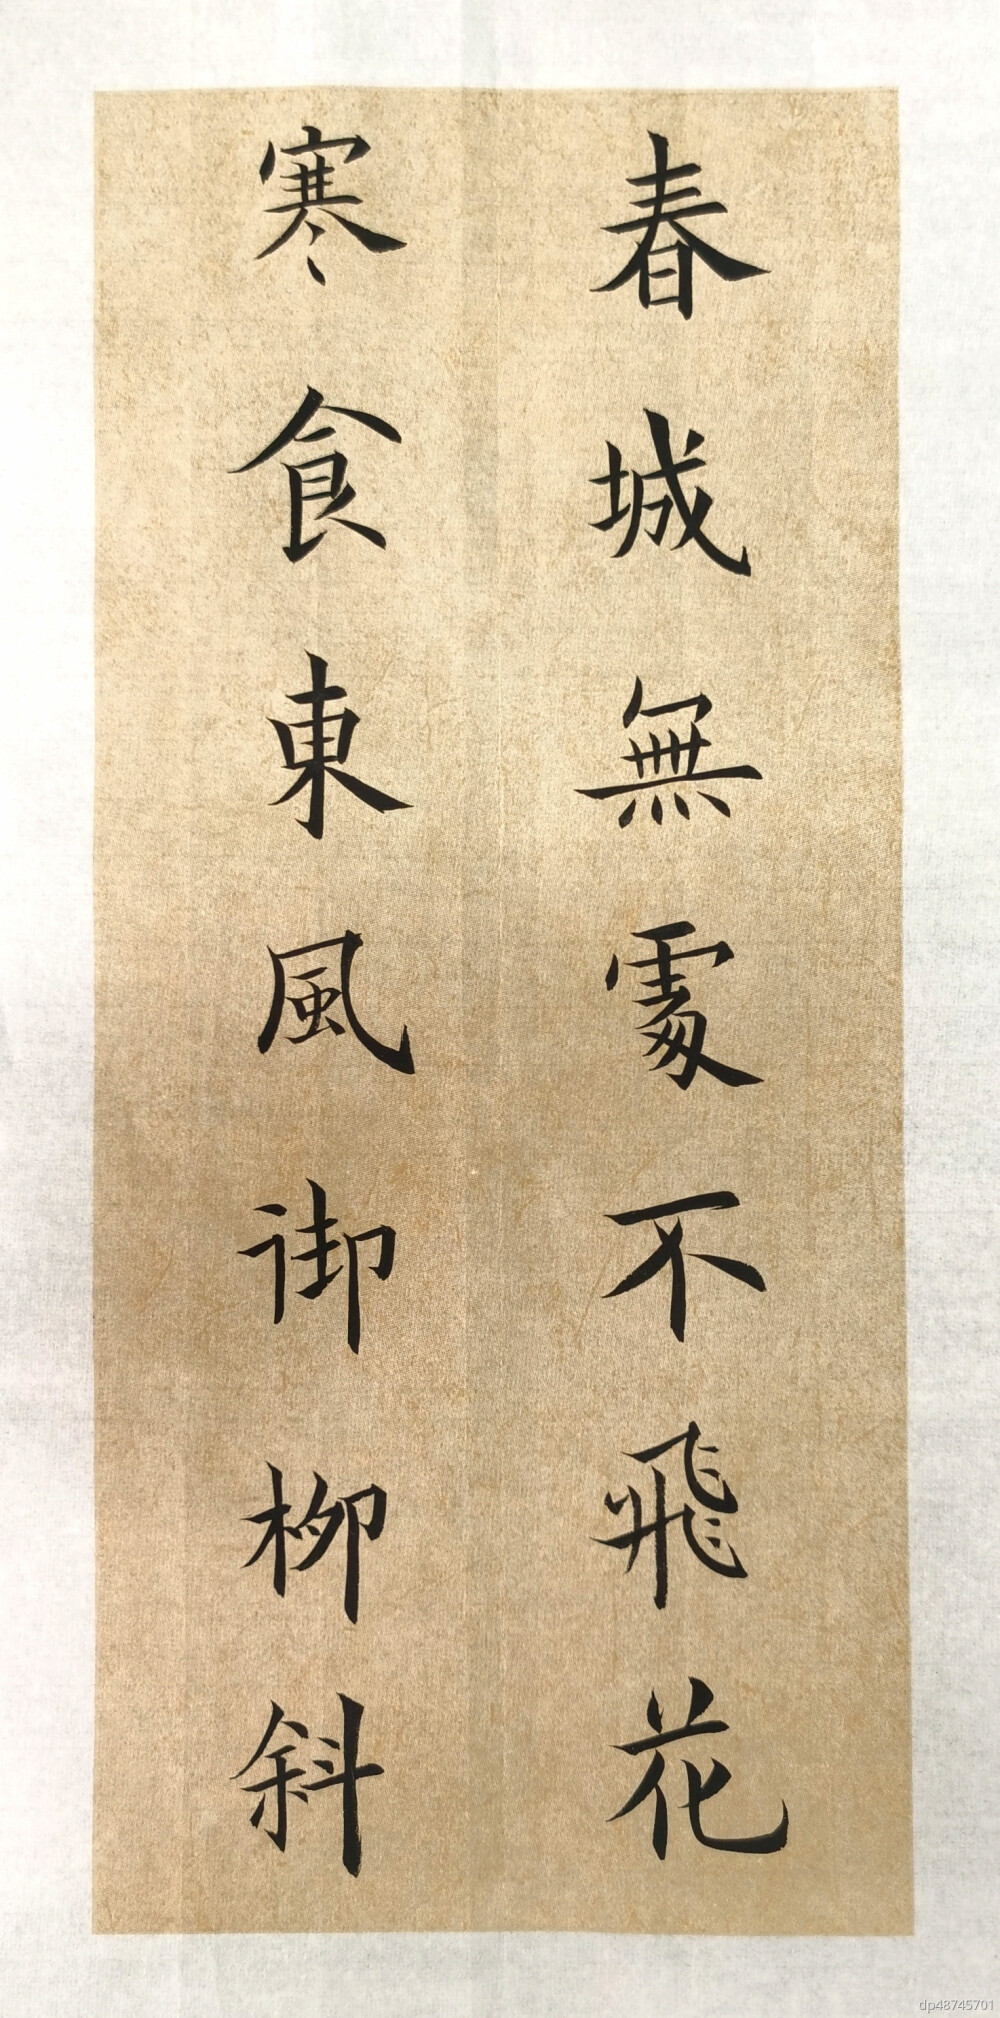 春城無處不飛花
寒食東風御柳斜
dp48745701